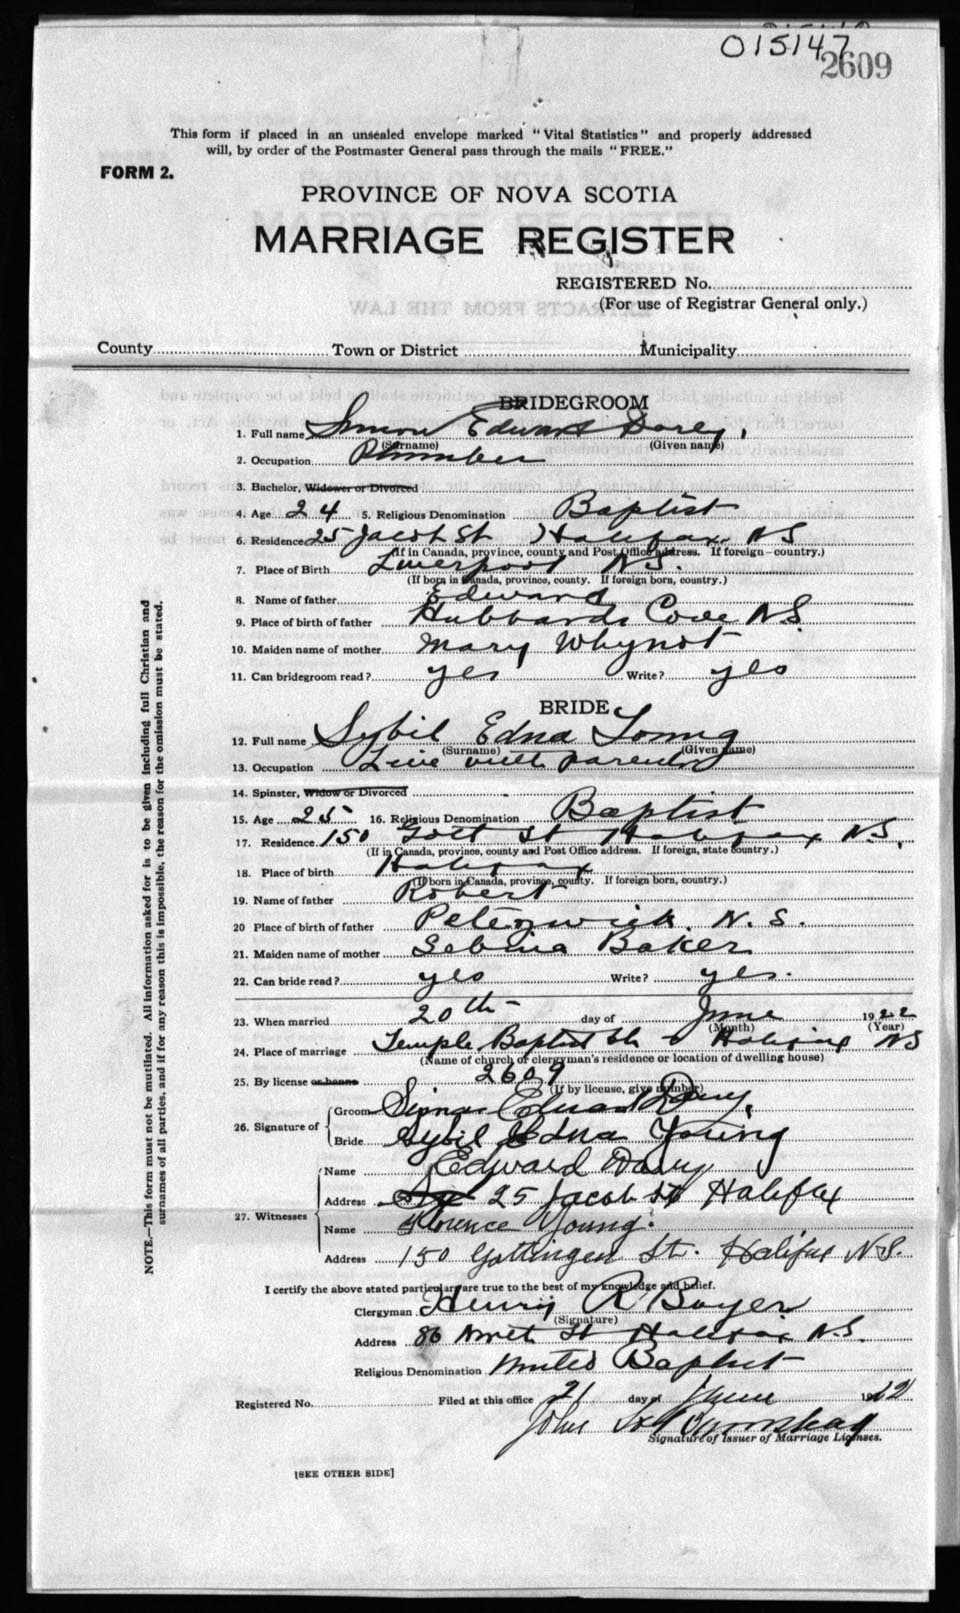 015147
2609
This form if placed in an unsealed envelope marked "Vital Statistics" and properly addressed
will, by order of the Postmaster General pass through the mails "FREE."
FORM 2.
PROVINCE OF NOVA SCOTIA
MARRIAGE REGISTER
REGISTERED No.
(For use of Registrar General only.)
County Town or District Municipality
BRIDEGROOM
1. Full name Simon Edward Dorey
(Surname) (Given name)
2. Occupation Plumber
3. Bachelor, Widower or Divorced
4. Age 24 5. Religious Denomination Baptist
6. Residence 25 Jacob St Halifax NS
(If in Canada, province, county and Post Office address. If foreign—country.)
7. Place of Birth Liverpool N.S.
(If born in Canada, province, county. If foreign born, country.)
8. Name of father Edward
9. Place of birth of father Hubbards Cove N.S.
10. Maiden name of mother Mary Whynot
11. Can bridegroom read? yes Write? yes
BRIDE
12. Full name Sybil Edna Young
(Surname) (Given name)
13. Occupation Live with parents
14. Spinster, Widow or Divorced
15. Age 25 16. Religious Denomination Baptist
17. Residence 150 Gott St Halifax N.S.
(If in Canada, province, county and Post Office address. If foreign, state country.)
18. Place of birth Halifax
(If born in Canada, province, county. If foreign born, country.)
19. Name of father Robert
20 Place of birth of father N.S.
21. Maiden name of mother Sebina Baker
22. Can bride read? yes Write? yes.
23. When married 20th day of June 1922
(Month) (Year)
24. Place of marriage Temple Baptist Ch Halifax NS
(Name of church of clergyman's residence or location of dwelling house)
25. By license or banns 2609
(If by license, give number)
26. Signature of
Groom Simon Edward
Bride Sybil Edna Young
27. Witnesses
Name Edward
Address 25 Jacob St Halifax
Name Florence Young.
Address 150 Gottingen St. Halifax N.S.
I certify the above stated particulars are true to the best of my knowledge and belief.
Clergyman Henry R Boyer
(Signature)
Address 86 St Halifax N.S.
Religious Denomination United Baptist
Registered No. Filed at this office 21 day of June 1922
John
Signature of Issuer of Marriage Licenses.
[SEE OTHER SIDE]
NOTE.—This form must not be mutilated. All information asked for is to be given including full Christian and
surnames of all parties, and if for any reason this is impossible, the reason for the omission must be stated.